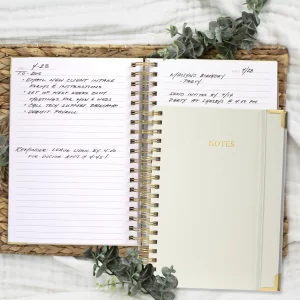 4-23
TO-DOS
• EMAIL NEW CLIENT INTAKE
FORMS & INSTRUCTIONS
• SET UP NEXT WEEKS
MEETINGS FOR MON & WEDS
• CALL TECH SUPPORT
SUBMIT PAYROLL
REMINDER: LEAVE WORK BY 4:30
FOR AT 5:45!
BIRTHDAY
PARTY
SEND INVITES BY 7/14
PARTY AT @ 4:30 PM
NOTES